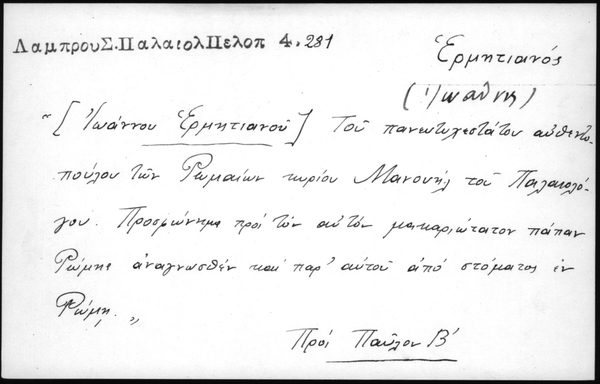 ΛαμπρουΣ.ΠαλαιολΠελοπ 4, 281
Ἑρμητιανός
(Ἰωάννης)
"[Ἰωάννου Ἑρμητιανοῦ] Τοῦ πανευτυχεστάτου αὐθεντο-
πούλου τῶν Ρωμαίων κυρίου Μανουὴλ τοῦ Παλαιολό-
γου. Προσφώνημα πρὸς τὸν αὐτὸν μακαριώτατον πάπαν
Ρώμης ἀναγνωσθὲν καὶ παρ' αὐτοῦ ἀπὸ στόματος ἐν
Ρώμῃ."
Πρὸς Παῦλον Β'